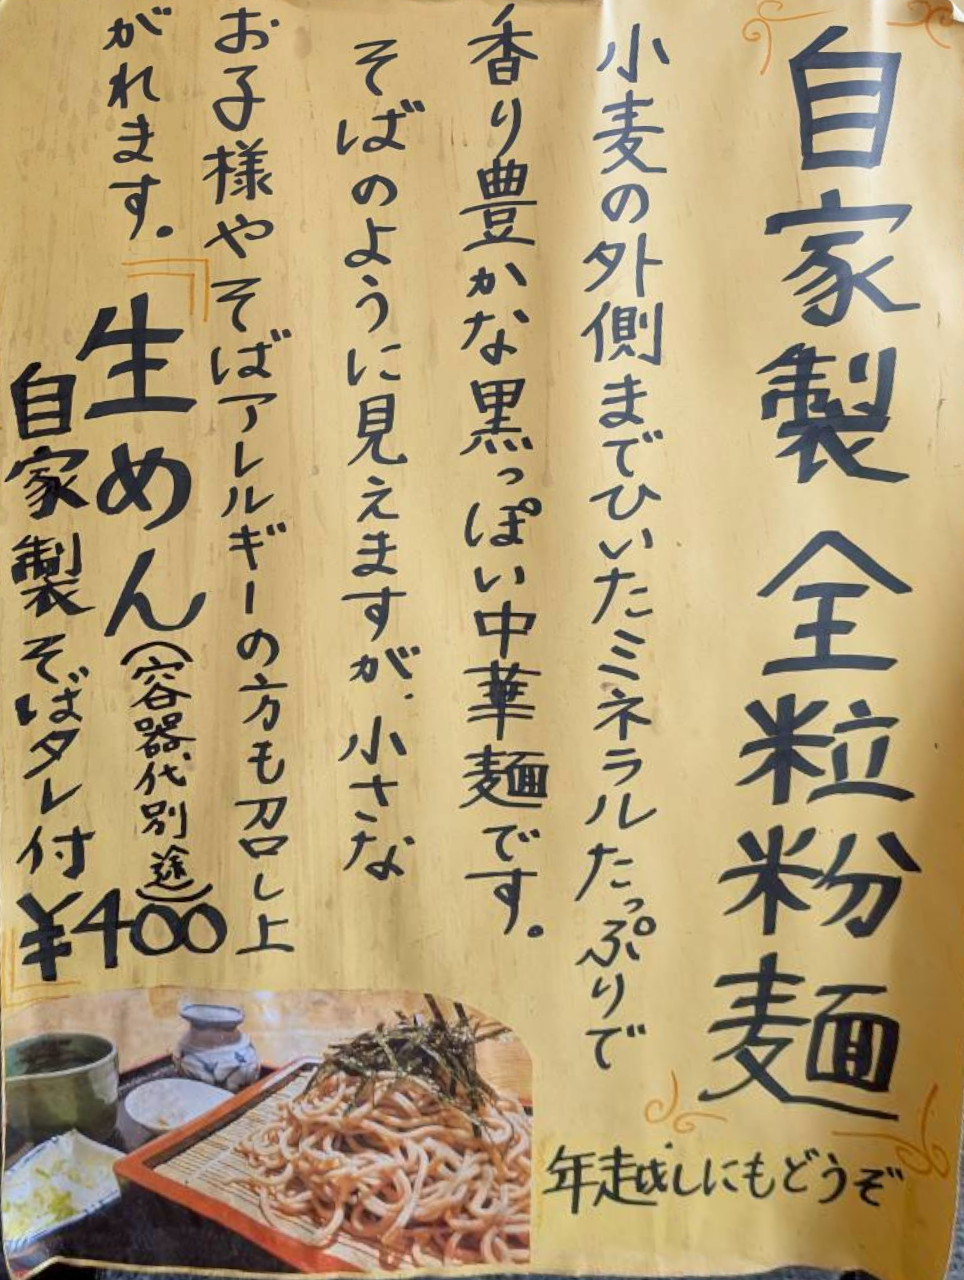 自家製 全粒粉麺
小麦の外側までひいたミネラルたっぷりで
香り豊かな黒っぽい中華麺です。
そばのように見えますが、小さな
お子様やそばアレルギーの方も召し上
がれます。
生めん(容器代別途)
自家製そばタレ付
¥400
年越しにもどうぞ